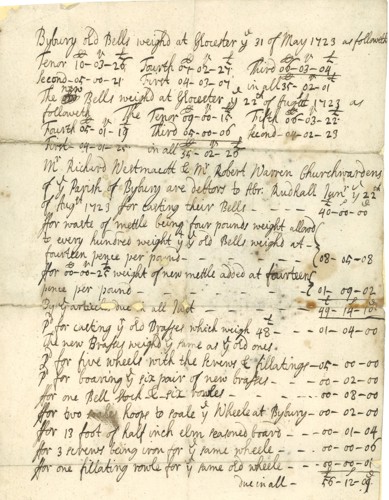 Bybury old Bells weigh'd at Glocester ye 31 of May 1723 as followeth
Tenor 10-03-26 Fourth 07-02-27 Third 06-03-04
Second-05-00-21 First 04-03-07 in all 35-02-01
The new Bells weighd at Glocester ye 22th of 1723 as
followeth The Tenor 09-00-15 Fifth 06-03-22
Fourth 05-01-19 Third 05-00-06 Second-04-02-23
First-04-01-25 in all 35-02-26
Mr Richard Westmacott & Mr Robert Warren Churchwardens
of ye Parish of Bybury are dettors to Abr: Rudhall Junr ye 22th
of Augst 1723 for casting their Bells - - - 40-00-00
ffor waste of mettle being four pounds weight allowd
to every hundred weight ye ye old Bells weighd at -
fourteen pence per pound - - - - 08-05-08
ffor 00-00-25 weight of new mettle added at fourteen
pence per pound - - - - 01-09-02
due in all 49-14-10
Pd for casting ye old Brasses which weigh 48 - - 01-04-00
new Brasses weighd ye same as ye old ones.
Pd for five wheels with the & fillatings - 05-00-00
Pd for boaring ye six pair of new brasses - - 00-02-00
ffor one Bell Stock & six rowles - - 00-08-00
ffor two hoops to ye Wheele at Bybury - 00-02-00
ffor 13 foot of half inch elm seasoned board - - 00-01-04
ffor 3 being iron for ye same wheele - - 00-00-06
ffor one fillating rowle for ye same old wheele - - 00-00-01
due in all - 56-12-09